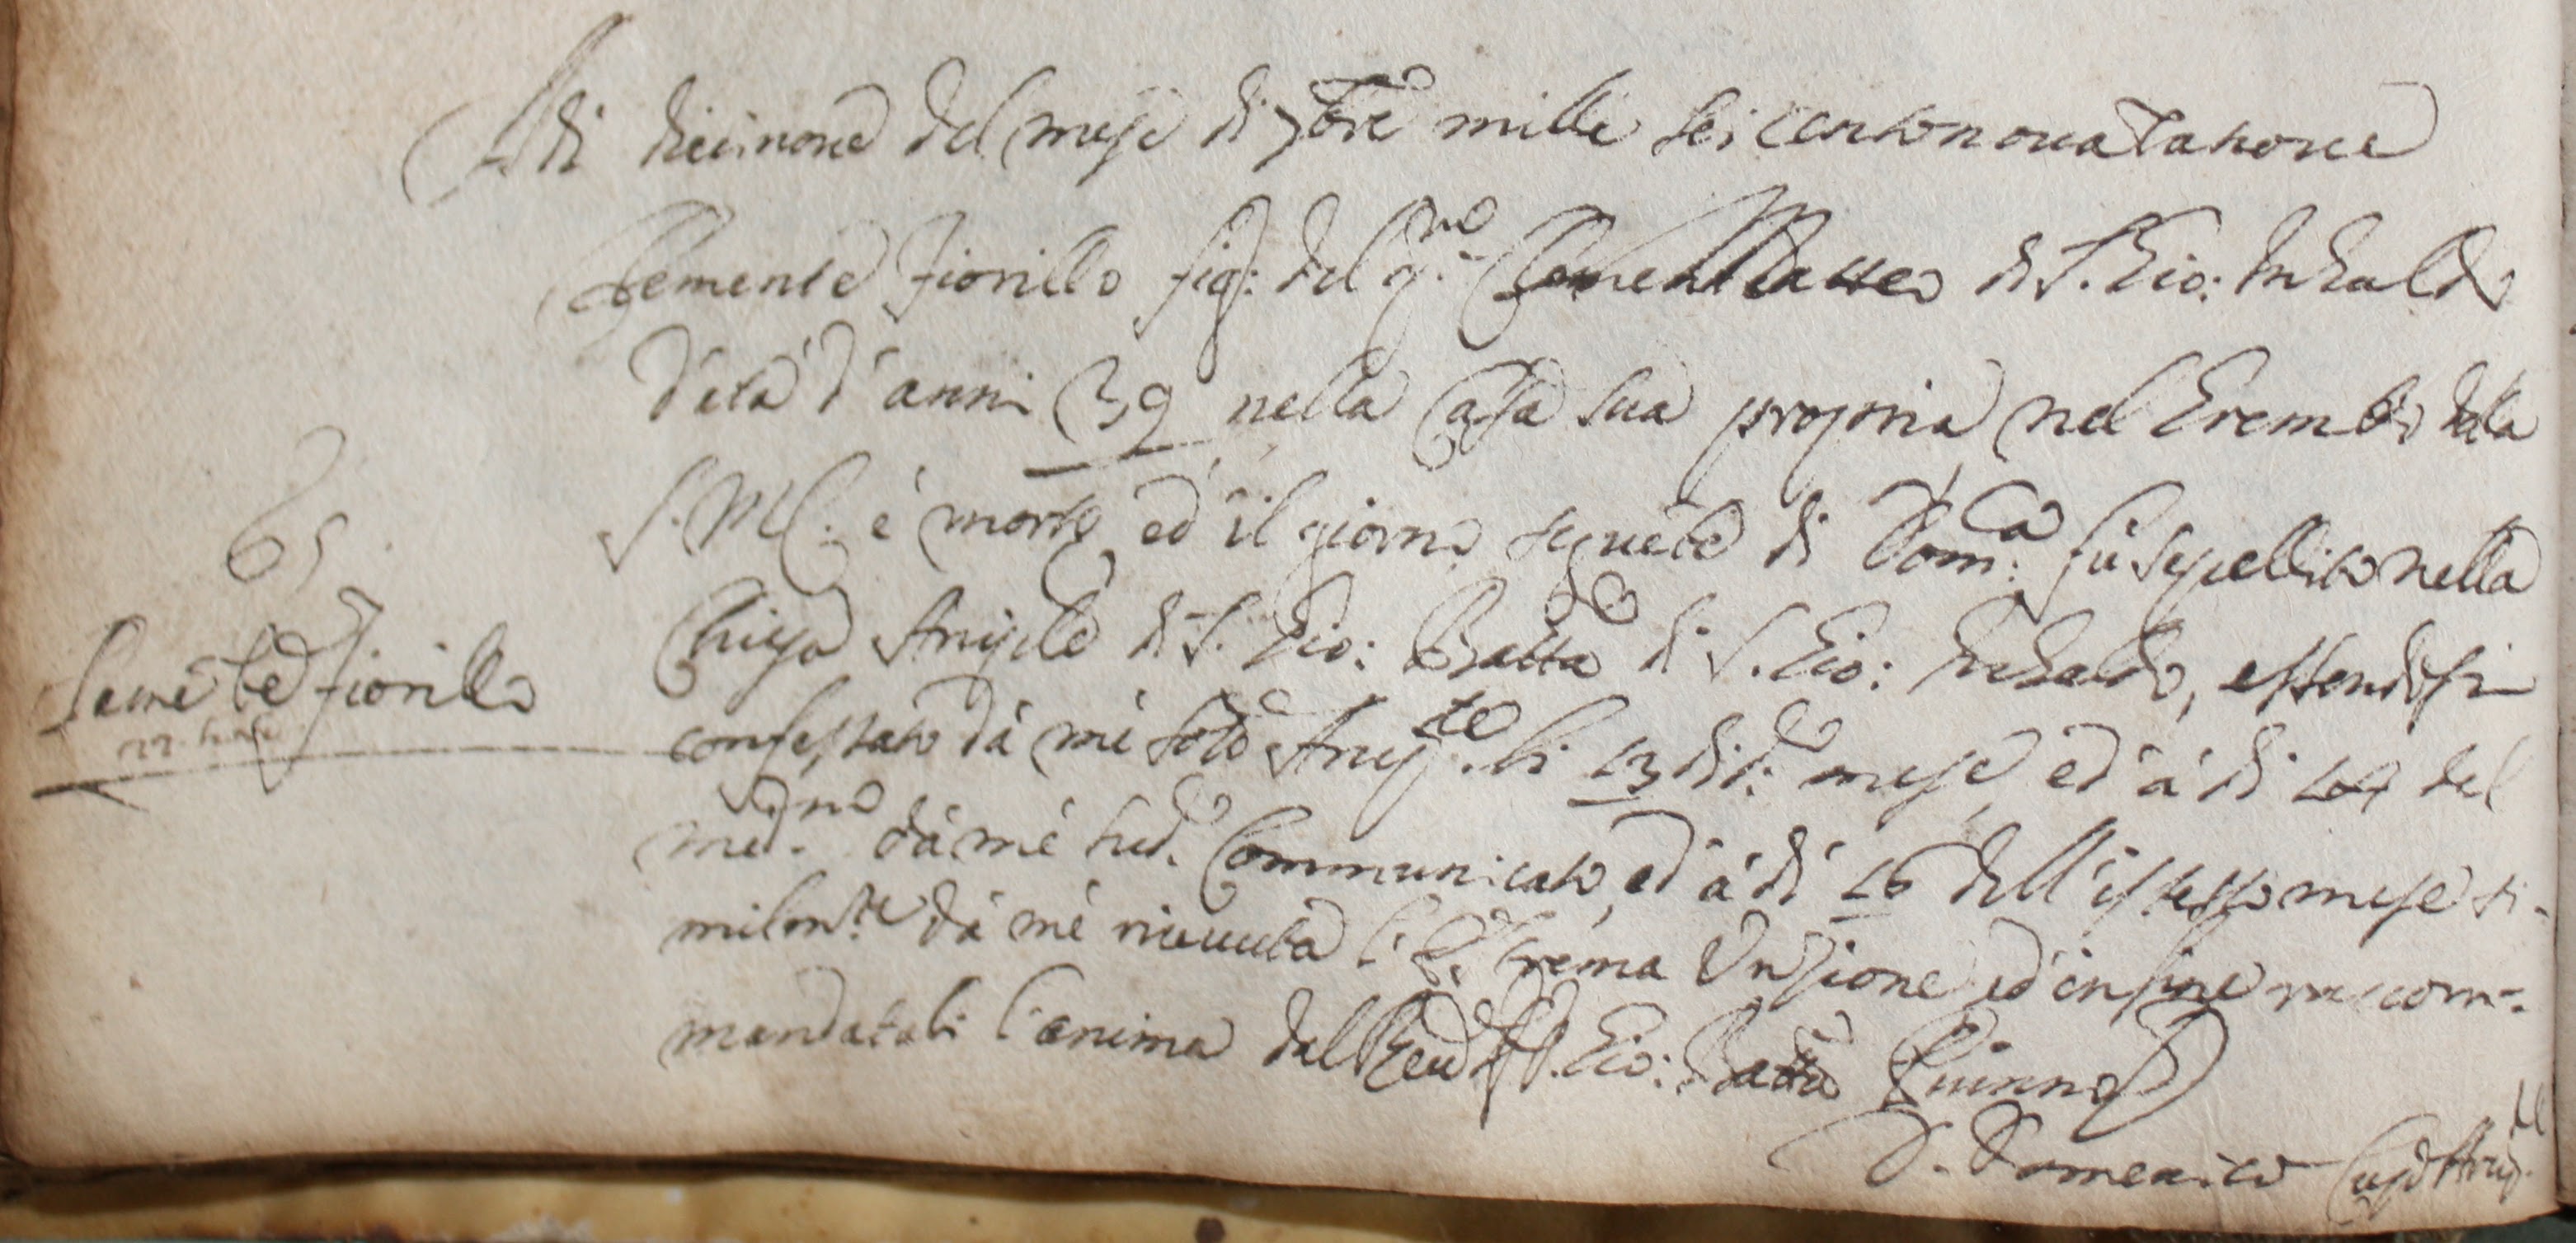 Adi diecinove del mese di 7bre mille seicento novatanove
Clemente Fiorillo fig: del q.mo Matteo di S. Gio: Inhaldo
d'età d'anni 39 nella Casa sua propria nel Grembo della
S. M. C. è morto ed il giorno seguete di Dom.ca fù sepellito nella
65
Chiesa Arciple di S. Gio: Batta di S. Gio: Inhaldo, essendosi
Clemēte Fiorillo
confessato dà mè sotto Arcip.te li 13 di d.o mese, ed à di 14 del
med.mo dà mè sud.o Communicato, ed à di 16 dell'istesso mese si-
milm.te dà mè riceuuta l'Estrema Unzione ed in fine raccom-
mandatali l'anima dal Reu.do D. Gio: Batta
D. Domenico Arcip.